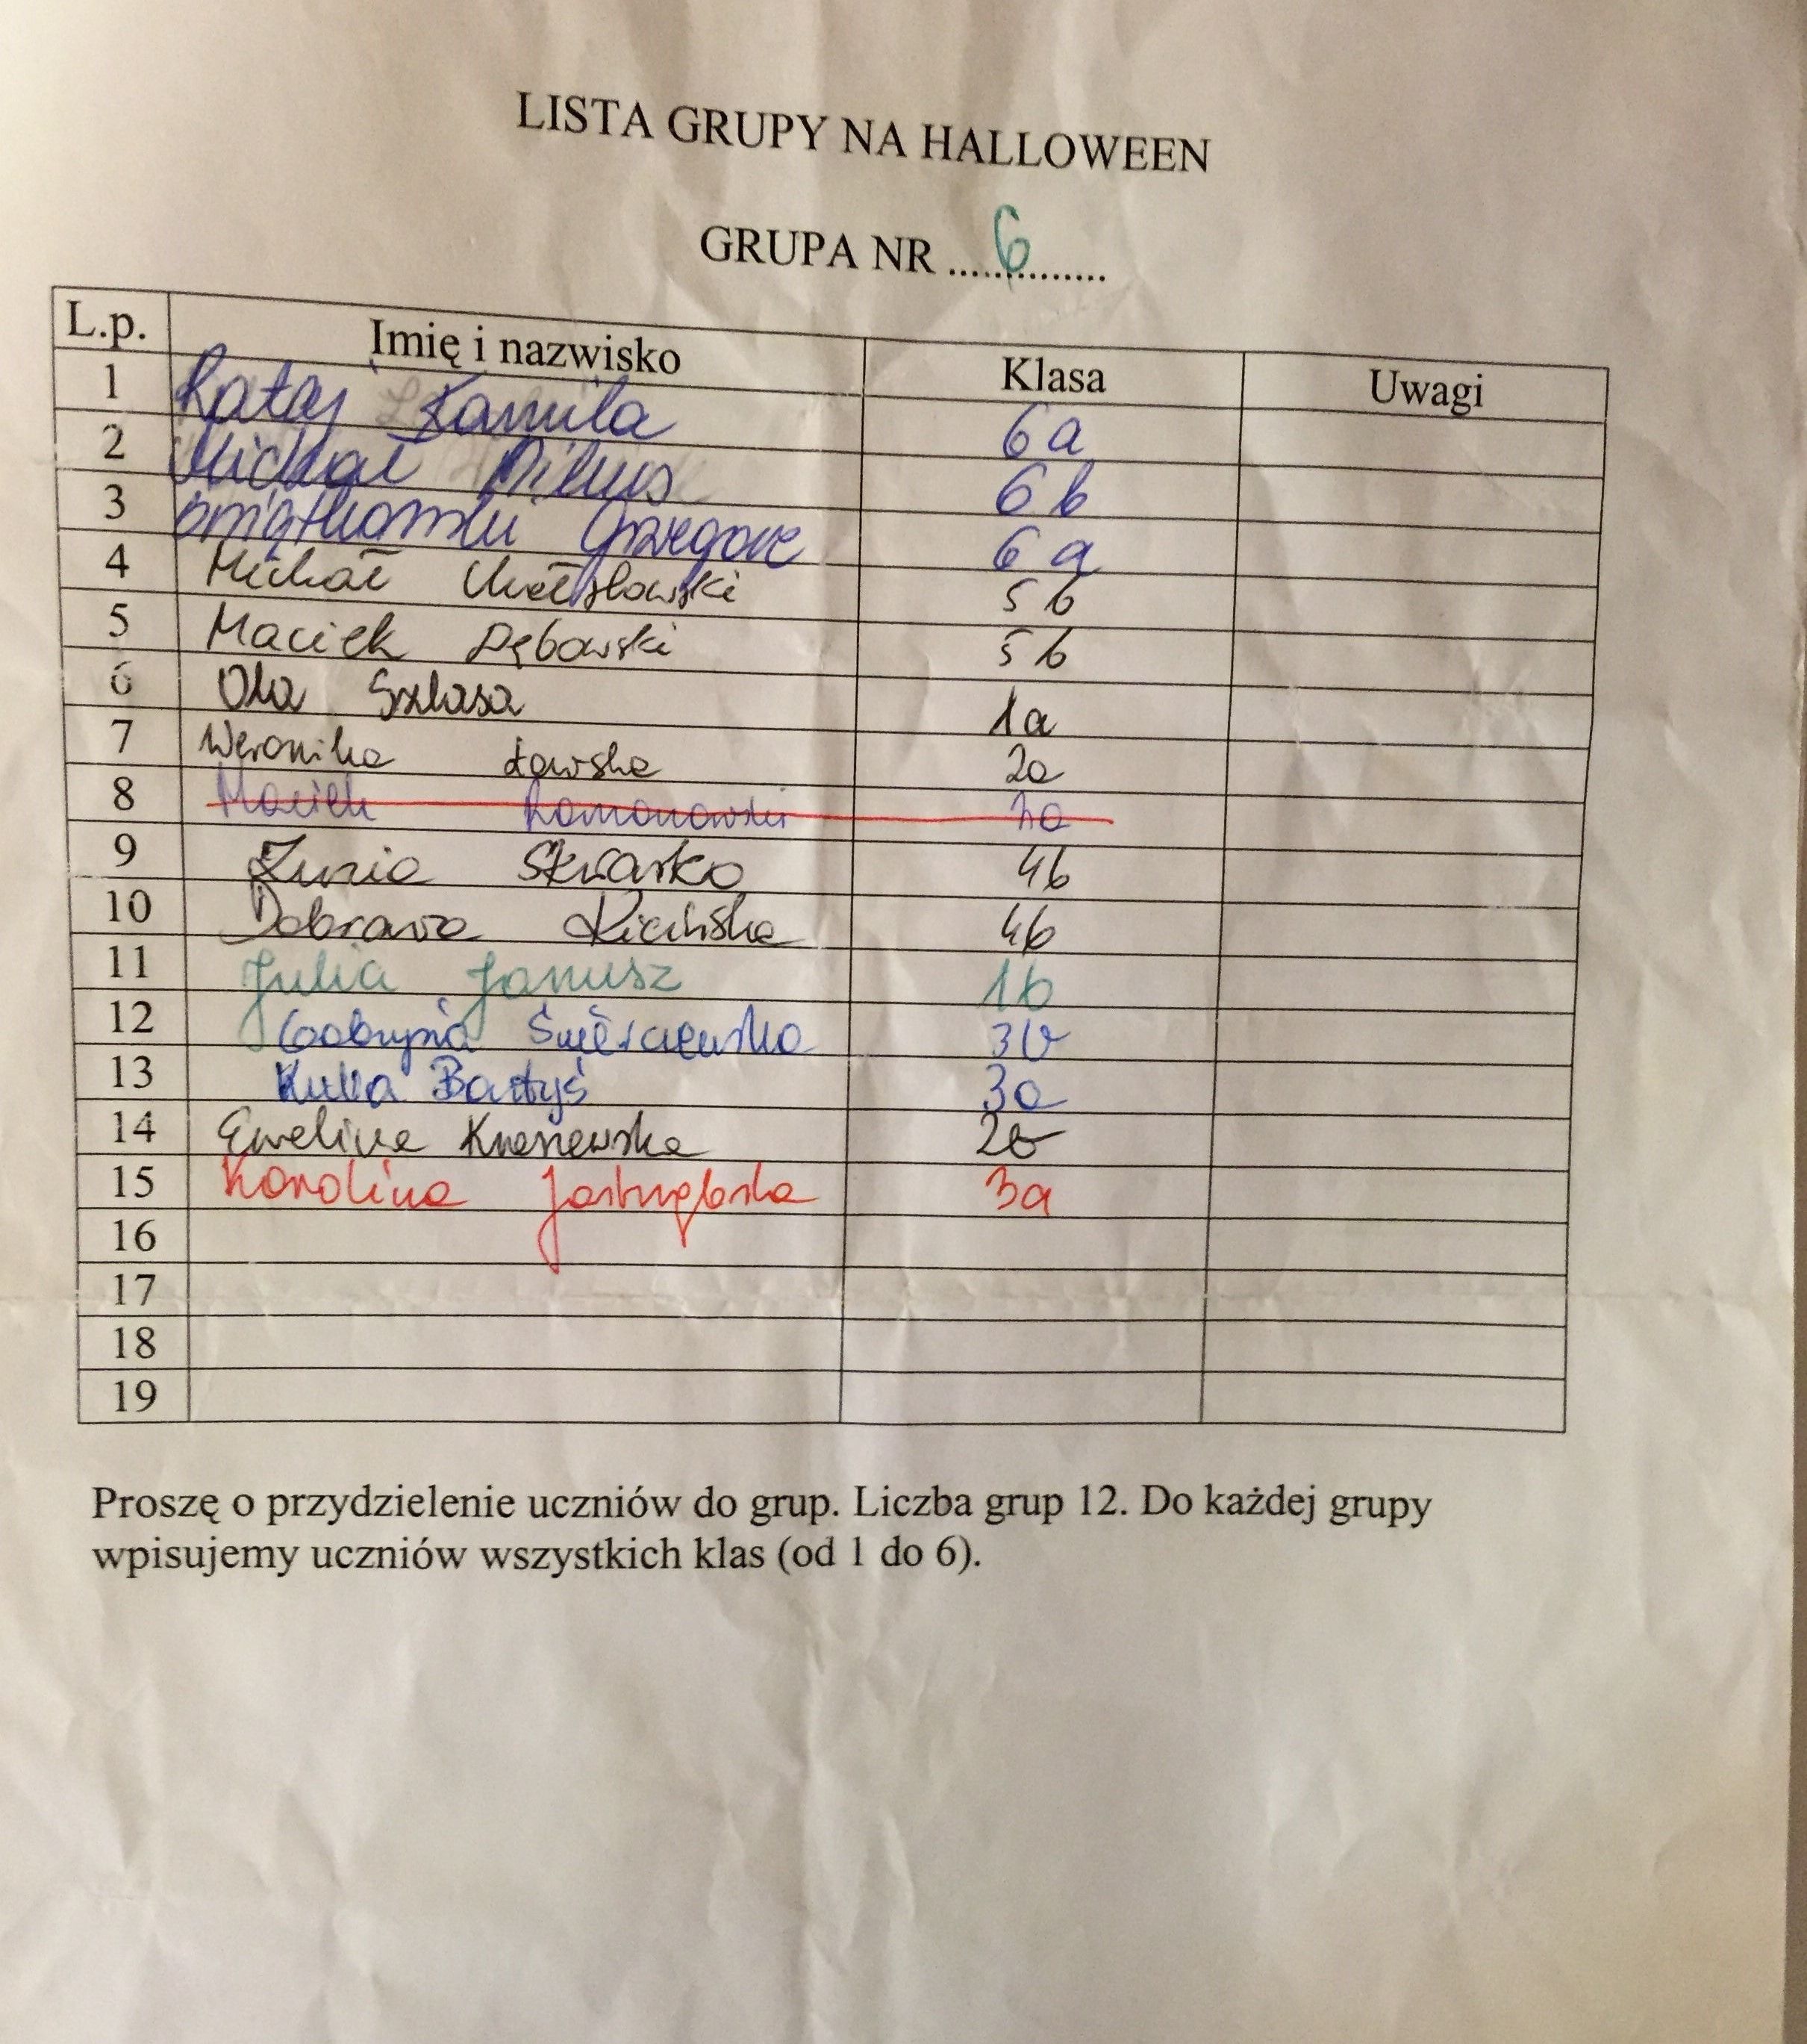 LISTA GRUPY NA HALLOWEEN
GRUPA NR .....6.......
L.p. Imię i nazwisko Klasa Uwagi
1 Rataj Kamila 6a
2 Michał 6b
3 Grzegorz 6a
4 Michał 5b
5 Maciek Dębowski 5b
6 Ola Szlasa 1a
7 Weronika Ławska 2a
8 Maciek Romanowski
9 Zuzia Skwarko 4b
10 Dobrawa 4b
11 Julia Janusz 1b
12 Gabrysia Świerczewska 3b
13 Kuba Bartyś 3a
14 Ewelina 2b
15 Karolina Jastrzębska 3a
16
17
18
19
Proszę o przydzielenie uczniów do grup. Liczba grup 12. Do każdej grupy
wpisujemy uczniów wszystkich klas (od 1 do 6).